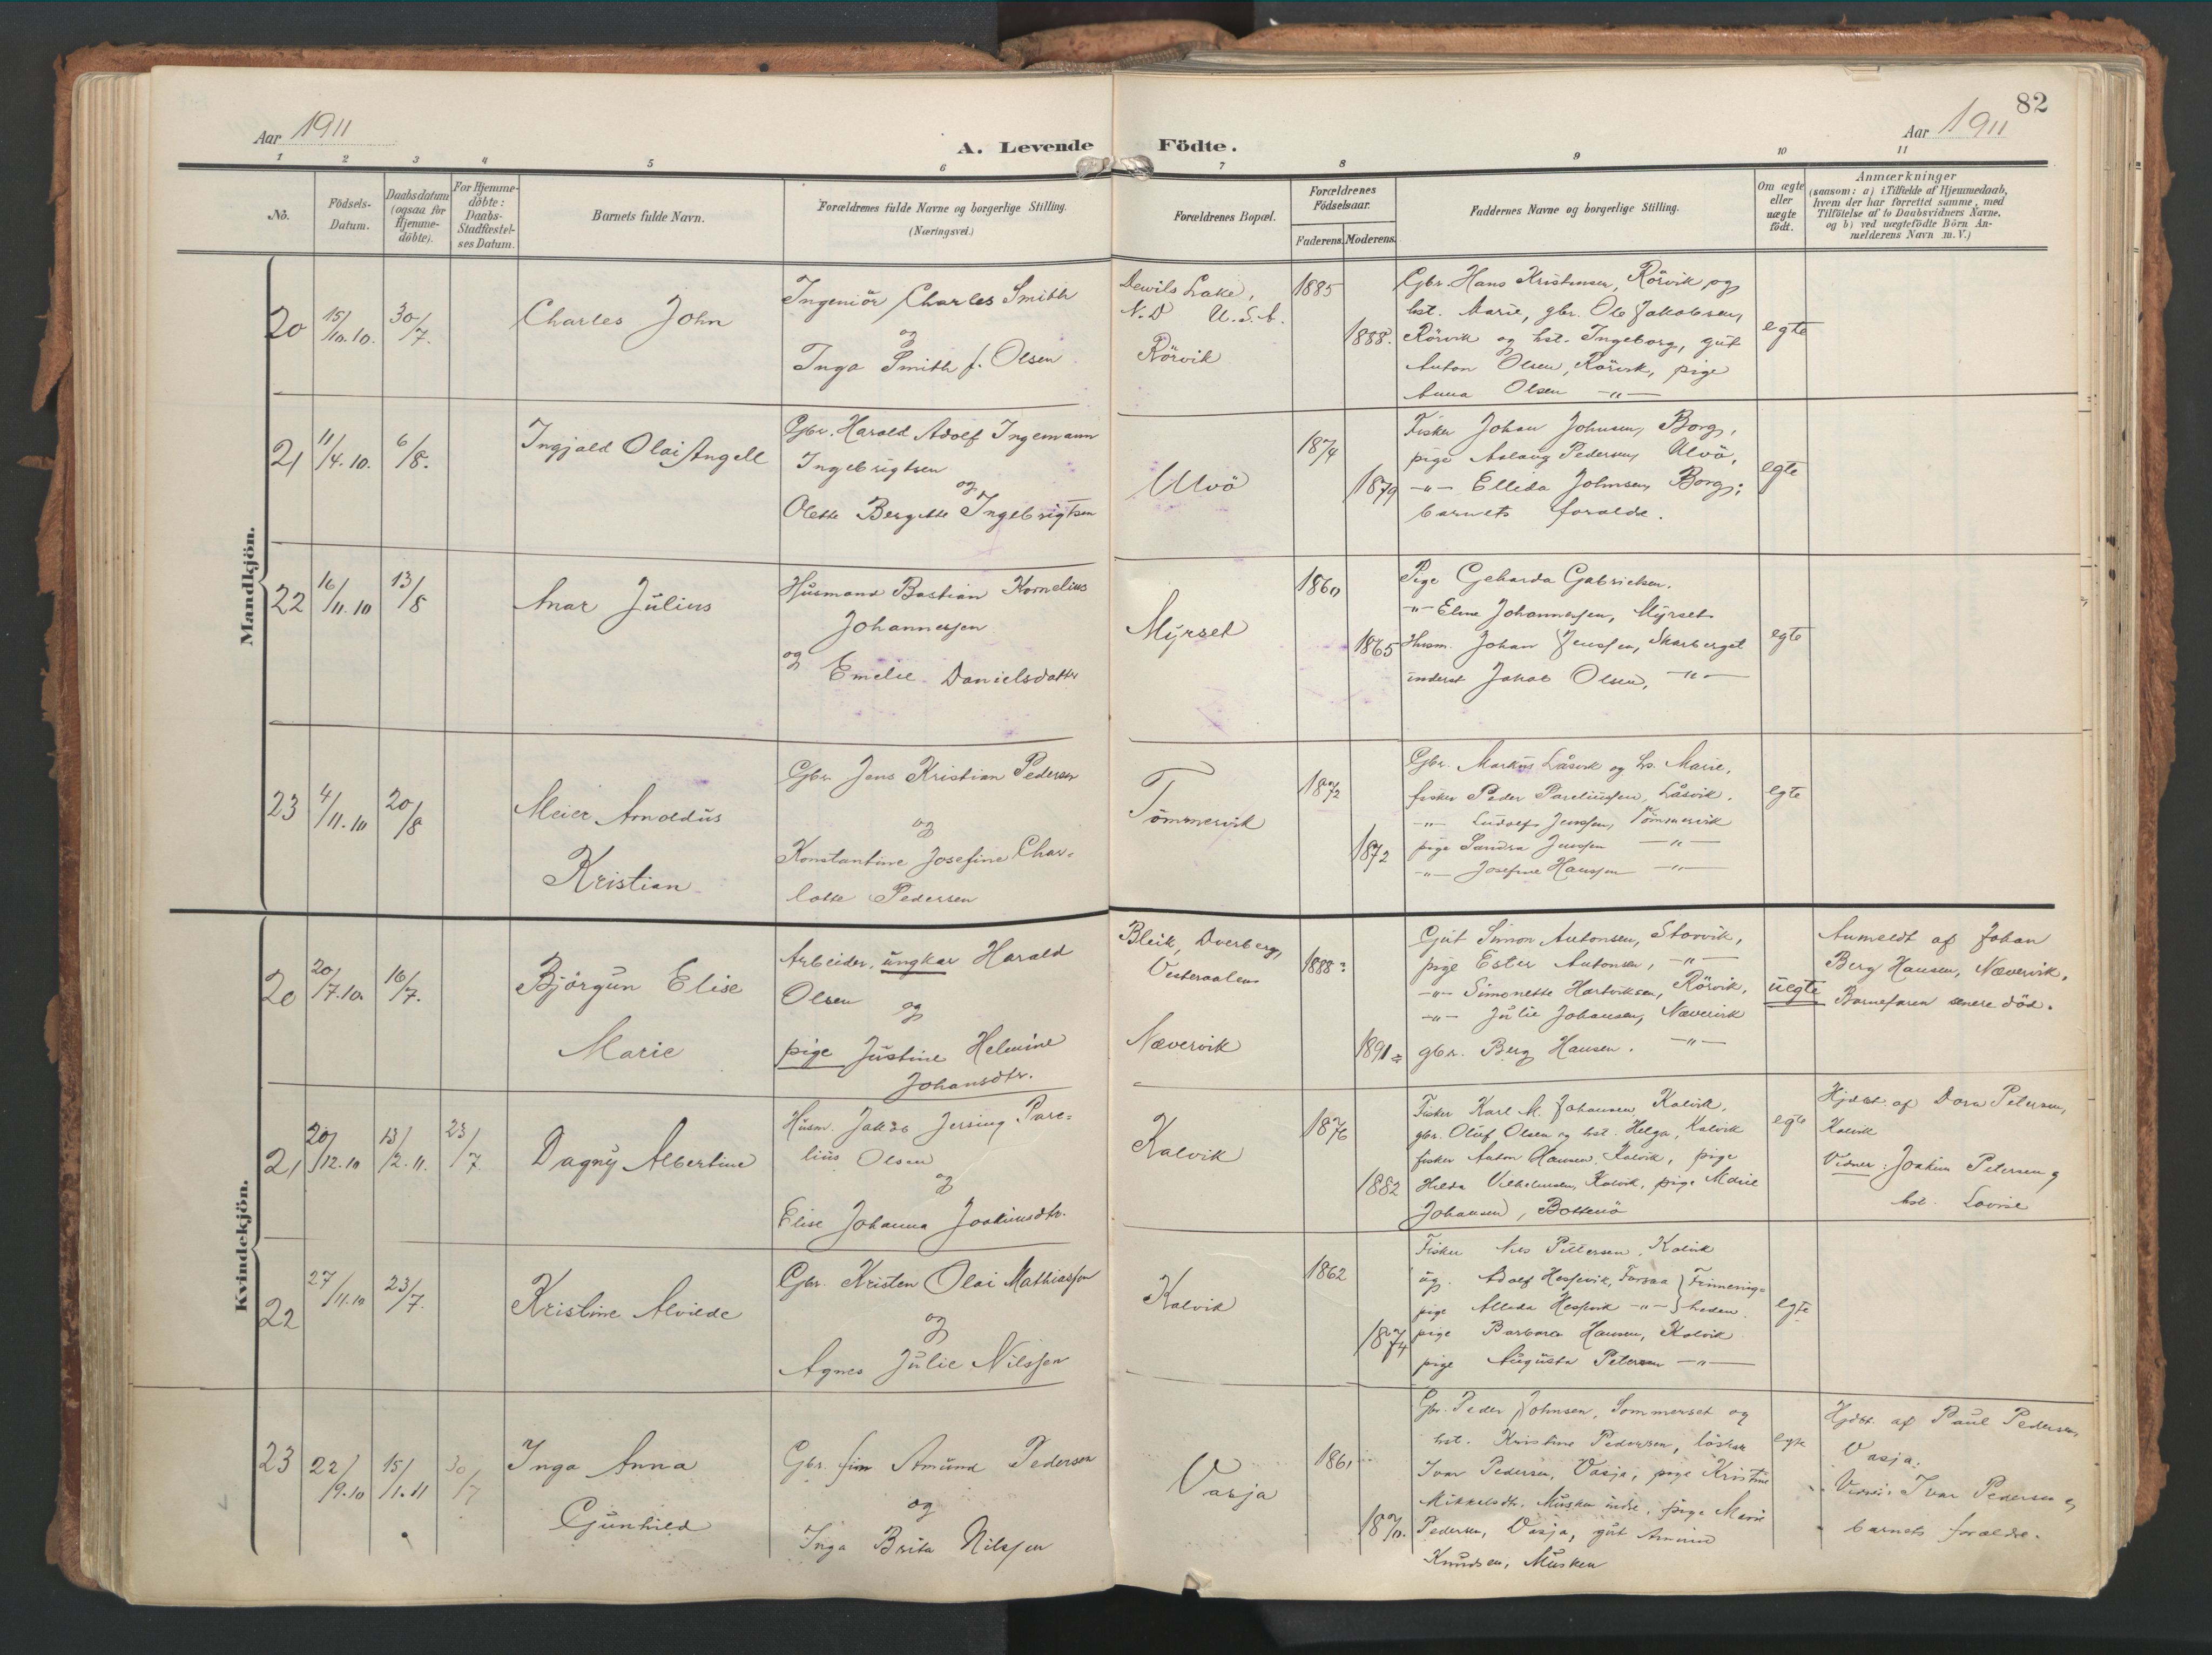 82
Aar 1911
A. Levende Födte.
Aar 1911
1 2 3 4 5 6 7 8 9 10 11
No.
Födsels-
Datum.
Daabsdatum
(ogsaa for
Hjemme-
döbte).
For Hjemme-
döbte:
Daabs-
Stadfæstel-
ses Datum.
Barnets fulde Navn.
Forældrenes fulde Navne og borgerlige Stilling.
(Næringsvei.)
Forældrenes Bopæl.
Forældrenes
Födselsaar.
Faderens. Moderens.
Faddernes Navne og borgerlige Stilling.
Om ægte
eller
uægte
födt.
Anmærkninger
(saasom: a) i Tilfælde af Hjemmedaab,
hvem der har forrettet samme, med
Tilföielse af to Daabsvidners Navne,
og b) ved uægtefödte Börn An-
melderens Navn m. V.)
Mandkjön.
20
15/10.10.
30/7.
Charles John
Ingeniör Charles Smith
og
Inga Smith f. Olsen
Dewils Lake,
N.D U.S.A.
Rörvik
1885
1888.
Gbr. Hans Kristensen, Rörvik og
hst. Marie, gbr. Ole Jakobsen,
Rörvik og hst. Ingeborg, gut
Anton Olsen, Rörvik, pige
Anna Olsen -"-
egte
21
11/4.10.
6/8.
Ingjald Olai Angell
Gbr. Harald Adolf Ingemann
Ingebrigtsen
og
Olette Bergitte Ingebrigtsen
Ulvö
1874
1879
Fisker Johan Johnsen, Borg,
pige Aslaug Pedersen, Ulvö,
-"- Ellida Johnsen, Borg;
barnets forældre.
egte
22
16/11.10
13/8
Anar Julius
Husmand Bastian Kornelius
Johannessen
og Emelie Danielsdatter
Myrset
1860
1865
Pige Geharda Gabrielsen.
-"- Eline Johannessen, Myrset
Husm. Johan Jenssen, Skarberget
inderst Jakob Olsen, -"-
egte
23
4/11.10
20/8
Meier Arnoldus
Kristian
Gbr. Jens Kristian Pedersen
og
Konstantine Josefine Char-
lotte Pedersen
Tömmervik
1872
1872
Gbr. Markus Låsvik og hs. Marie,
fisker Peder Pareliussen, Låsvik.
-"- Ludolf Jenssen, Tömmervik
pige Sandra Jenssen -"-
-"- Josefine Hanssen -"-
egte
Kvindekjön.
20
20/7.10.
16/7.
Björgun Elise
Marie
Arbeider, ungkar Harald
Olsen og
pige Justine Helmine
Johansdtr.
Bleik, Dverberg,
Vesteraalen
Nævervik
1888
1891
Gut Simon Antonsen, Storvik,
pige Ester Antonsen, -"-
-"- Simonette Hartviksen, Rörvik,
-"- Julie Johansen, Nævervik
gbr. Berg Hansen. -"-
uegte
Anmeldt af Johan
Berg Hansen, Nævervik.
Barnefaren senere död.
21
20/12.10
13/2.11.
23/7
Dagny Albertine
Husm. Jakob Jersing Pare-
lius Olsen
og
Elise Johanna Joakimsdtr.
Kalvik
1876
1882
Fisker Karl M. Johansen, Kalvik,
gbr. Oluf Olsen og hst. Helga, Kalvik
fisker Anton Hansen, Kalvik, pige
Hilda Vilhelmsen, Kalvik, pige Marie
Johansen, Bottenö
egte
Hjdbt. af Dora Petersen,
Kalvik
Vidner: Joakim Petersen og
hst. Lovise
22
27/11.10
23/7.
Kristine Alvilde
Gbr. Kristen Olai Mathiassen
og
Agnes Julie Nilssen
Kalvik
1862
1874
Fisker Nils Pettersen, Kalvik
ug. Adolf Hesjevik, Forsaa } Frimenig-
pige Alleda Hesjevik -"- } heden
pige Barbara Hansen, Kalvik
pige Augusta Petersen -"-
egte
23
22/9.10
15/1.11
30/7
Inga Anna
Gunhild
Gbr. sim Amund Pedersen
og
Inga Brita Nilssen
Vasja
1861
1870.
Gbr. Peder Johnsen, Sommerset og
hst. Kristine Pedersen, löskar
Ivar Pedersen, Vasja, pige Kristine
Mikkelsdtr. Musken indre, pige Marie
Pedersen, Vasja, gut Amund
Knudsen, Musken
egte
Hjdbt. af Paul Pedersen,
Vasja.
Vidner: Ivar Pedersen og
barnets forældre.